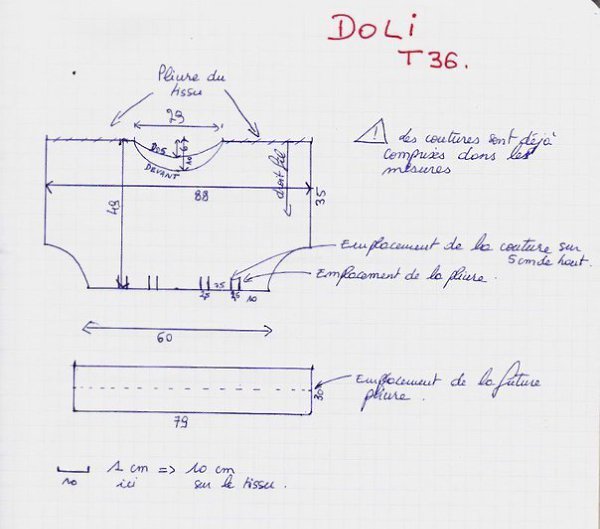 DOLi
T36.
Pliure du
tissu
29
DOS
6
10
DEVANT
droit fil
49
88
35
⚠ Les coutures sont déjà
comprises dans les
mesures
Emplacement de la couture sur
5 cm de haut.
Emplacement de la pliure.
25
10
60
Emplacement de la future
pliure.
30
79
10
1 cm => 10 cm
ici sur le tissu.